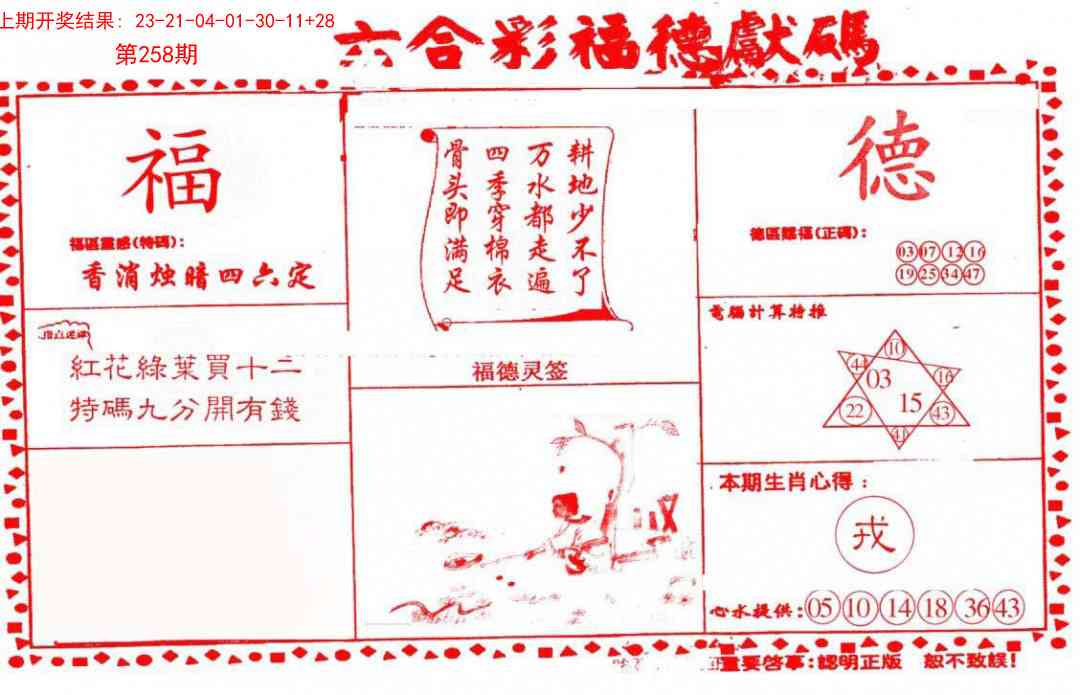 上期开奖结果: 23-21-04-01-30-11+28
第258期
六合彩福德獻碼
福
福區靈感(特碼):
香消烛暗四六定
紅花綠葉買十二
特碼九分開有錢
耕地少不了
万水都走遍
四季穿棉衣
骨头即满足
福德灵签
德
德區賜福(正碼):
03 07 12 16
19 25 34 47
電腦計算特推
10
44 03 16
22 15 43
41
本期生肖心得:
戎
心水提供:05 10 14 18 36 43
重要啓事:認明正版 恕不致誤!